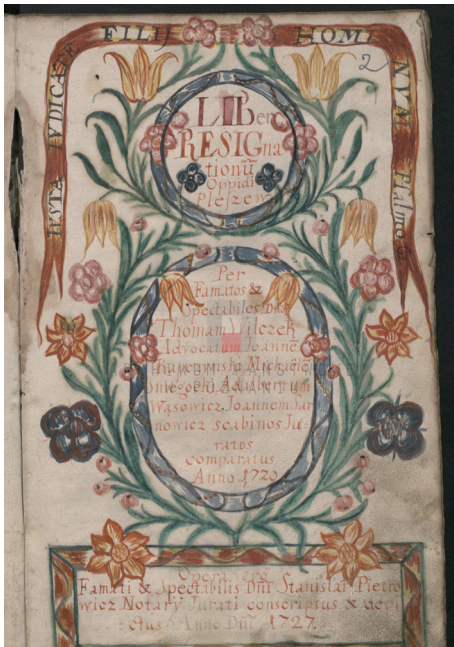 IUSTA IUDICATE FILIJ HOMINUM Psalmo
2
LIBer
RESIGna
tionũ
Oppidi
Pleszew
Per
Famatos &
Spectabiles Dños
Thomam Wilczek
Advocatum Joannẽ
Michaelem
Sniegocki Adalbertum
Wąsowicz Joannem Jar
nowicz Scabinos Ju-
ratos
comparatus
Anno 1720
Opera vero
Famati & Spectabilis Dñi Stanislai Pietro
wicz Notarÿ Jurati conscriptus &
ctus Anno Dñi 1727.